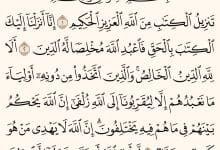 تَنزِيلُ ٱلْكِتَٰبِ مِنَ ٱللَّهِ ٱلْعَزِيزِ ٱلْحَكِيمِ ١ إِنَّآ أَنزَلْنَآ إِلَيْكَ
ٱلْكِتَٰبَ بِٱلْحَقِّ فَٱعْبُدِ ٱللَّهَ مُخْلِصًا لَّهُ ٱلدِّينَ ٢ أَلَا
لِلَّهِ ٱلدِّينُ ٱلْخَالِصُ ۚ وَٱلَّذِينَ ٱتَّخَذُوا۟ مِن دُونِهِۦٓ أَوْلِيَآءَ
مَا نَعْبُدُهُمْ إِلَّا لِيُقَرِّبُونَآ إِلَى ٱللَّهِ زُلْفَىٰٓ إِنَّ ٱللَّهَ يَحْكُمُ
بَيْنَهُمْ فِى مَا هُمْ فِيهِ يَخْتَلِفُونَ ۗ إِنَّ ٱللَّهَ لَا يَهْدِى مَنْ هُوَ